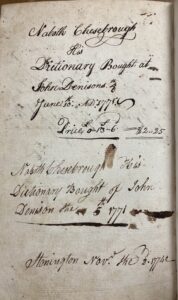 Nabith Chesebrough
His
Dictionary Bought at
John Denisons
June
Price 0-15-6 $2.25
Nabith Chesebrough His
Dictionary Bought of John
Denison the 5 1771
Stonington Novr the 3.